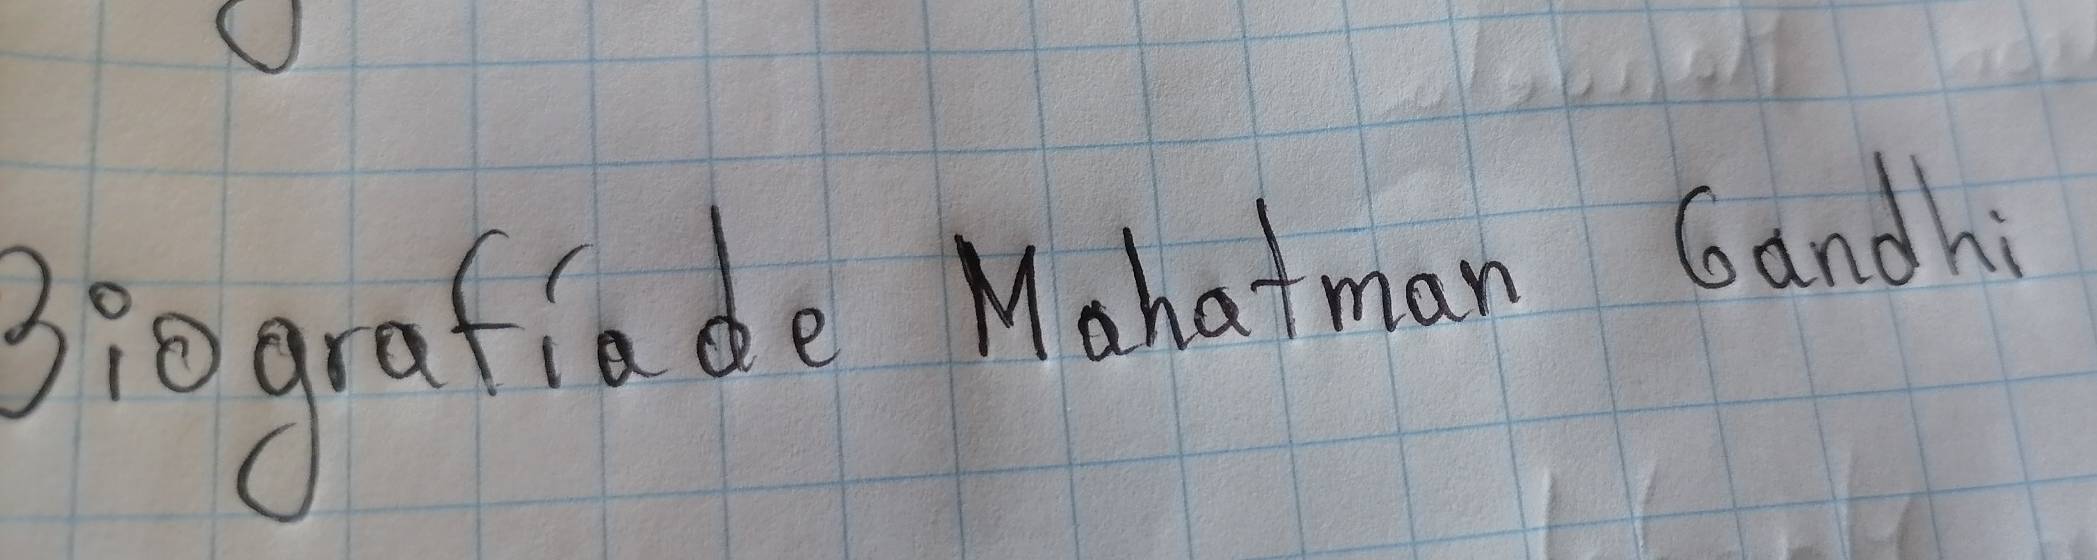 Biografía de Mahatman Gandhi